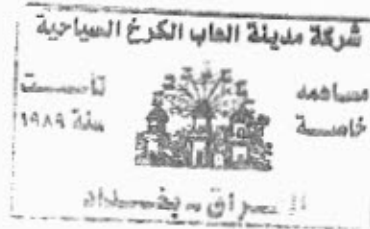 شركة مدينة العاب الكرخ السياحية
مساهمه تأسست
خاصة سنة ١٩٨٩
العراق - بغداد